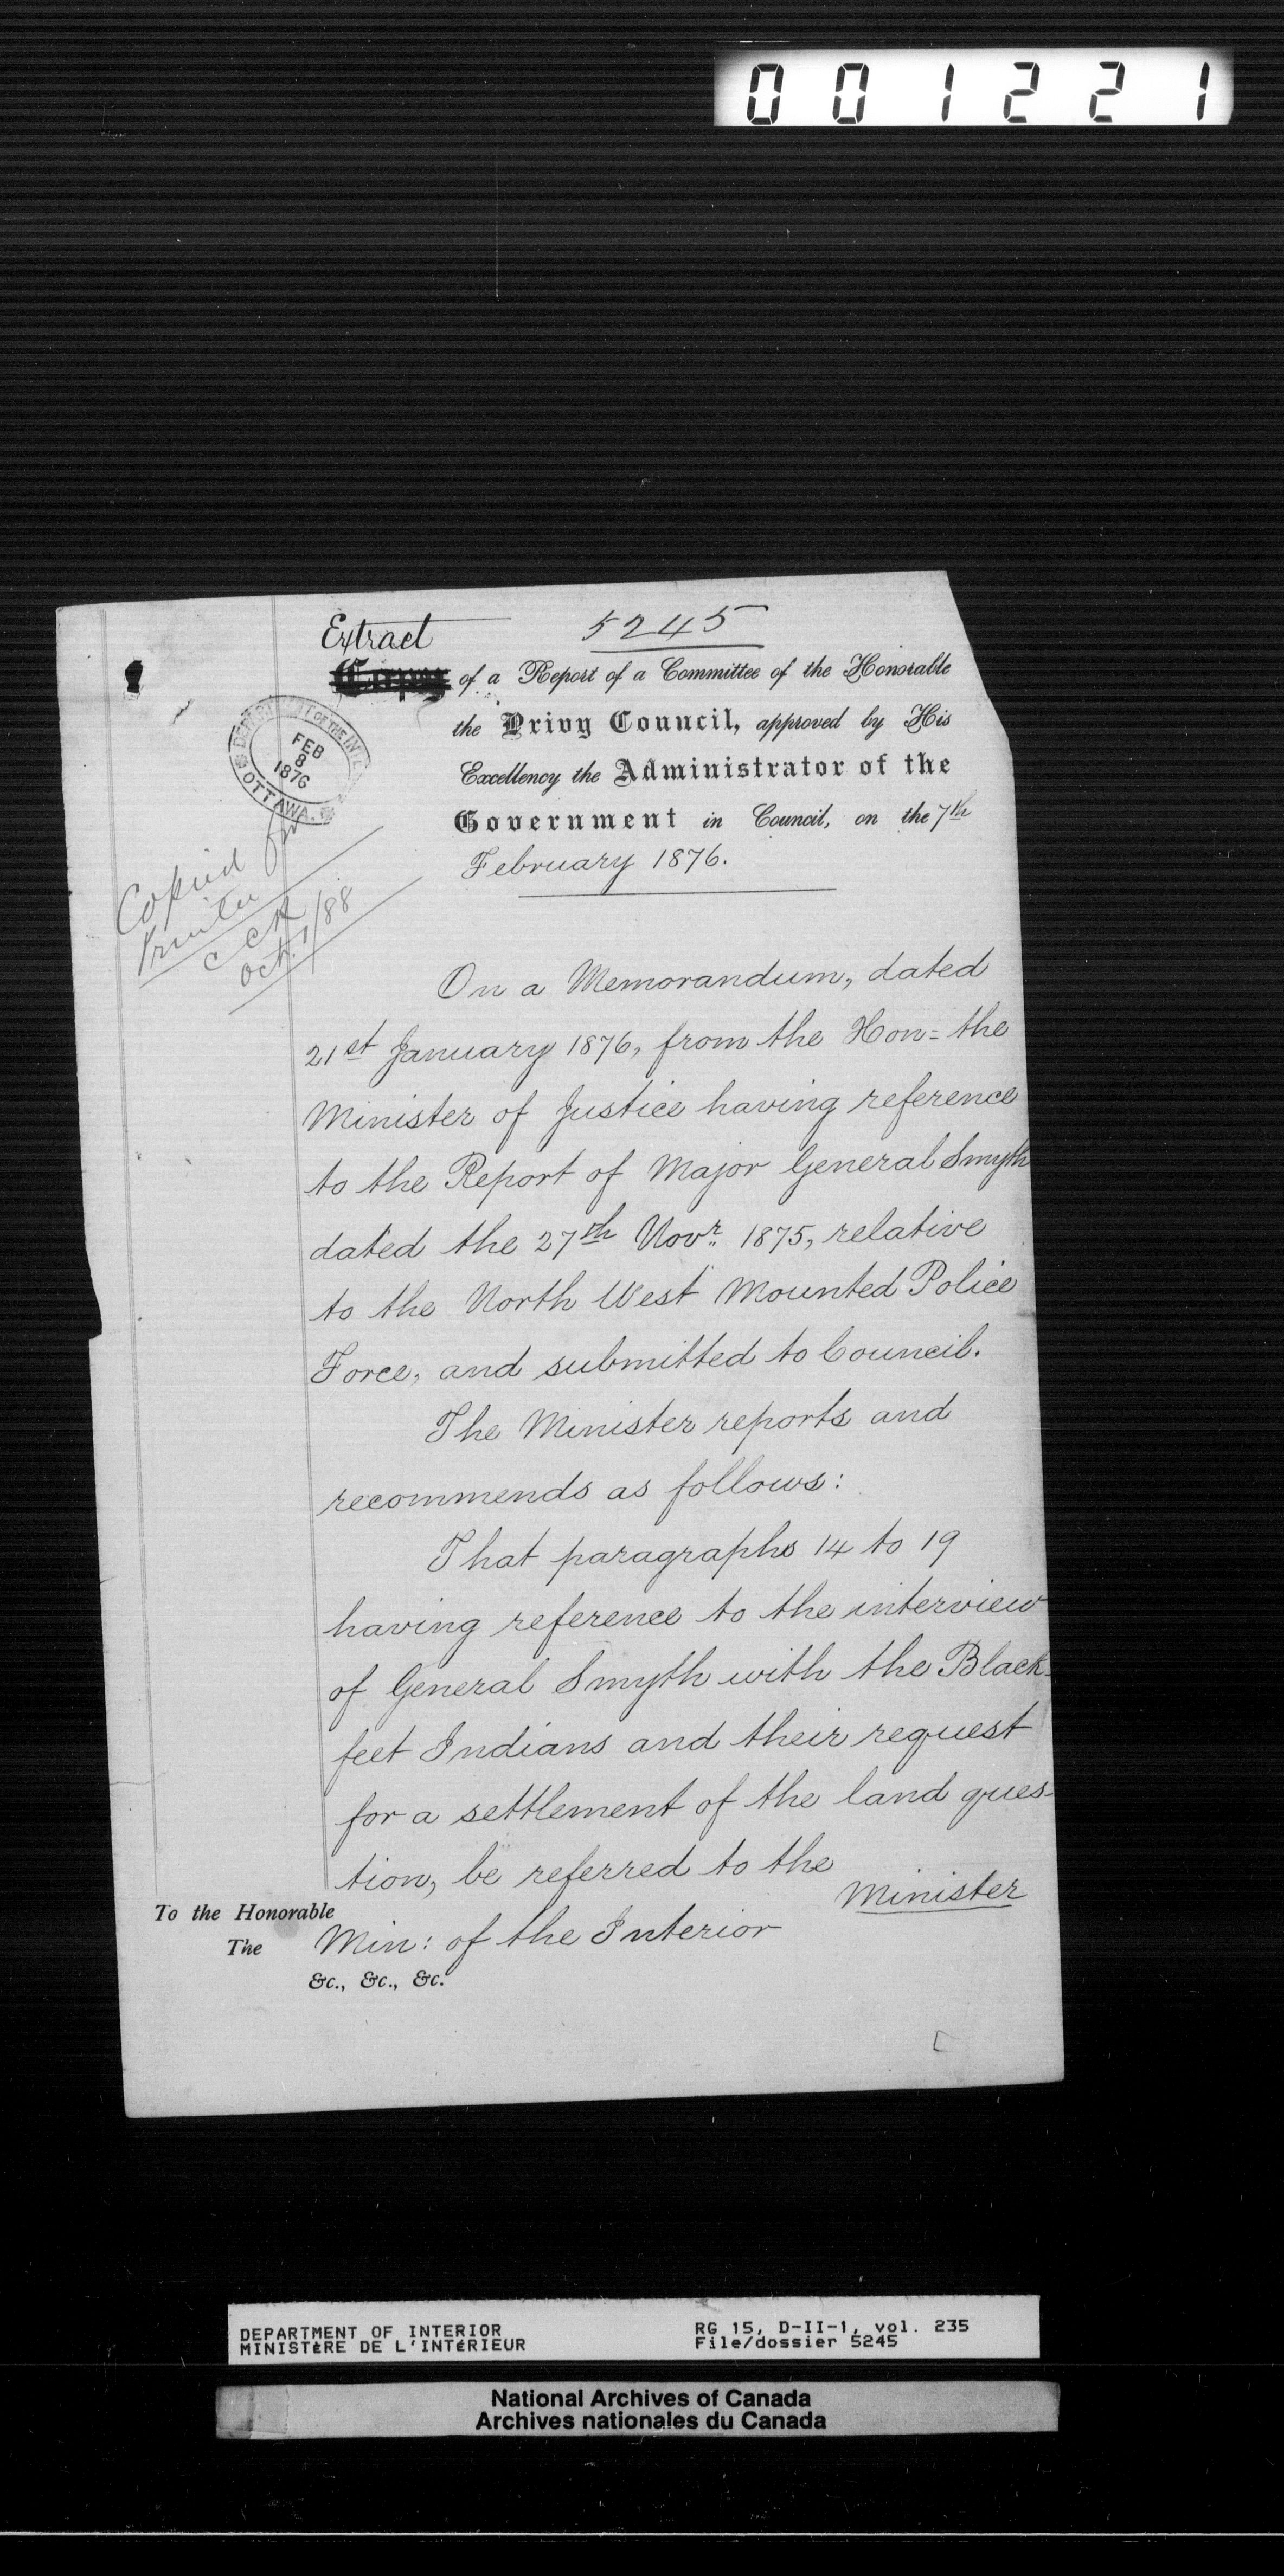 001221
Extract 5245
of a Report of a Committee of the Honorable
the Privy Council, approved by His
Excellency the Administrator of the
Government in Council, on the 7th
February 1876.
DEPARTMENT OF THE INTE
FEB
8
1876
OTTAWA.
Copied for
Printer
C C R
Oct. 1/88
On a Memorandum, dated
21st January 1876, from the Hon= the
Minister of Justice having reference
to the Report of Major General Smyth
dated the 27th Novr. 1875, relative
to the North West Mounted Police
Force, and submitted to Council.
The Minister reports and
recommends as follows:
That paragraphs 14 to 19
having reference to the interview
of General Smyth with the Black-
feet Indians and their request
for a settlement of the land ques-
tion, be referred to the
Minister
To the Honorable
The Min: of the Interior
&c., &c., &c.
DEPARTMENT OF INTERIOR
MINISTÈRE DE L'INTÉRIEUR
RG 15, D-II-1, vol. 235
File/dossier 5245
National Archives of Canada
Archives nationales du Canada